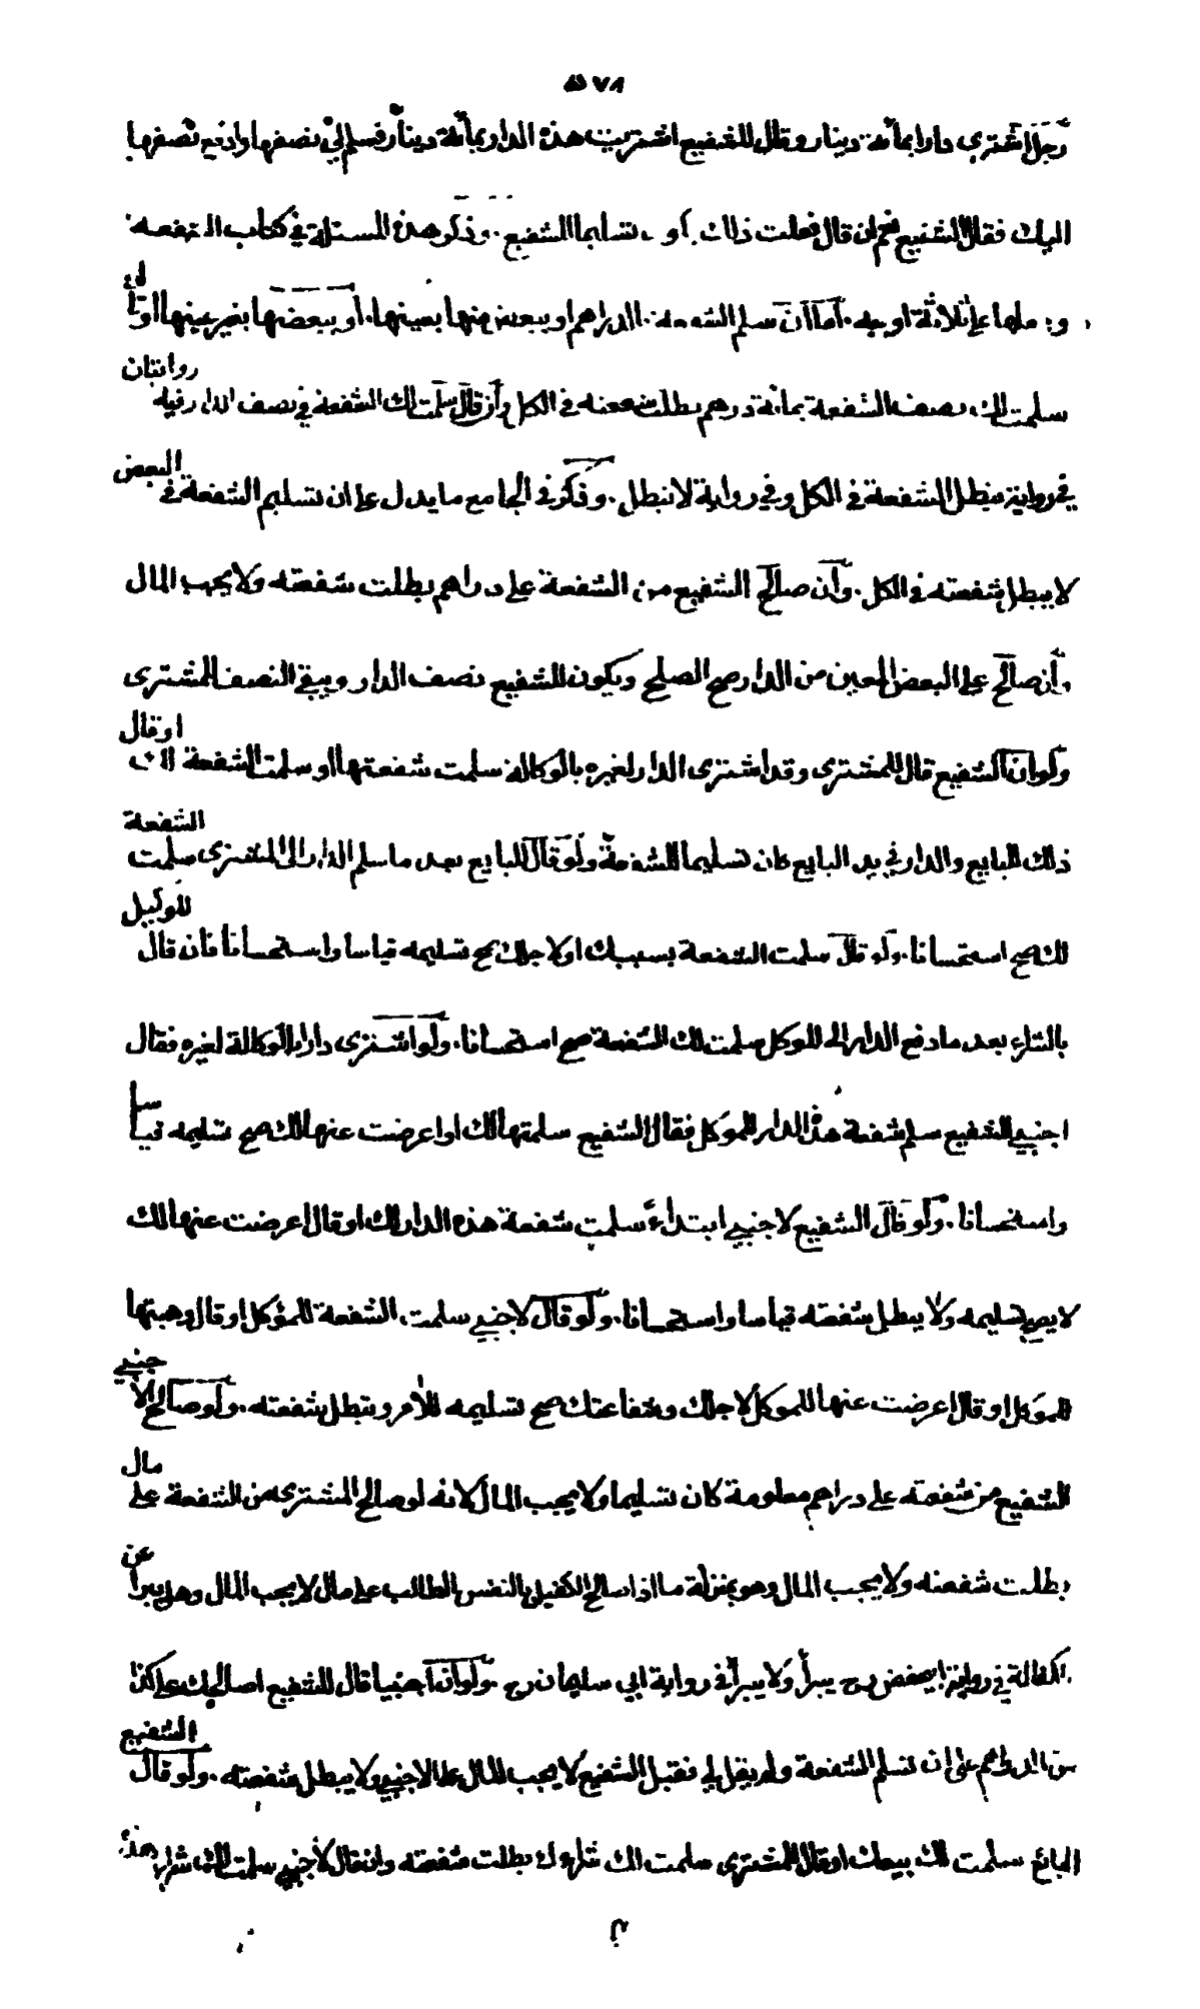 ٥٧٨
رجل اشترى دارا بمائة دينار وقال للشفيع اشتريت هذه الدار بمائة دينار فسلم لي نصفها وادفع نصفها
اليك فقال الشفيع نعم ان قال فعلت ذلك يكون تسليما للشفيع . وذكر هذه المسئلة في كتاب الشفعة
وجعلها على ثلاثة اوجه . اما ان سلم الشفعة الدراهم او ببعض منها بعينها . او ببعضها بغير عينها او قال
سلمت لك نصف الشفعة بمائة درهم بطلت شفعته في الكل وان قال سلمت لك الشفعة في نصف الدار فيه روايتان
في رواية تبطل الشفعة في الكل وفي رواية لا تبطل . وذكر في الجامع ما يدل على ان تسليم الشفعة في البعض
لا يبطل شفعته في الكل . وان صالح الشفيع من الشفعة على دراهم بطلت شفعته ولا يجب المال
وان صالح على البعض المعين من الدار صح الصلح ويكون للشفيع نصف الدار ويبقى النصف للمشترى
ولو ان الشفيع قال للمشترى وقد اشترى الدار لغيره بالوكالة سلمت شفعتها او سلمت الشفعة لك او قال
ذلك للبايع والدار في يد البايع كان تسليما للشفعة ولو قال للبايع بعد ما سلم الدار الى المشترى سلمت الشفعة
لك صح استحسانا . ولو قال سلمت الشفعة بسببك او لاجلك صح تسليمه قياسا واستحسانا فان قال للوكيل
بالشراء بعد ما دفع الدار الى الموكل سلمت لك الشفعة صح استحسانا . ولو اشترى دارا بالوكالة لغيره فقال
اجنبي للشفيع سلم شفعة هذه الدار للموكل فقال الشفيع سلمتها لك او اعرضت عنها لك صح تسليمه قياسا
واستحسانا . ولو قال الشفيع لاجنبي ابتداء سلمت شفعة هذه الدار لك او قال اعرضت عنها لك
لا يصح تسليمه ولا يبطل شفعته قياسا واستحسانا . ولو قال لاجنبي سلمت الشفعة للموكل او قال وهبتها
للموكل او قال اعرضت عنها للموكل لاجلك وشفاعتك صح تسليمه للآمر وتبطل شفعته . ولو صالح الاجنبي
الشفيع من شفعته على دراهم معلومة كان تسليما ولا يجب المال لانه لو صالح المشترى من الشفعة على مال
بطلت شفعته ولا يجب المال وهو بمنزلة ما اذا صالح الكفيل بالنفس الطالب على مال لا يجب المال وهل يبرأ عن
الكفالة في رواية ابي حفص رح يبرأ ولا يبرأ في رواية ابي سليمان رح . ولو ان اجنبيا قال للشفيع اصالحك على كذا
من الدراهم على ان تسلم الشفعة ولم يقل لي فقبل الشفيع لا يجب المال على الاجنبي ولا يبطل شفعته . ولو قال الشفيع
البائع سلمت لك بيعك او قال للمشترى سلمت لك شراءك بطلت شفعته وان قال لاجنبي سلمت لك شراء هذه